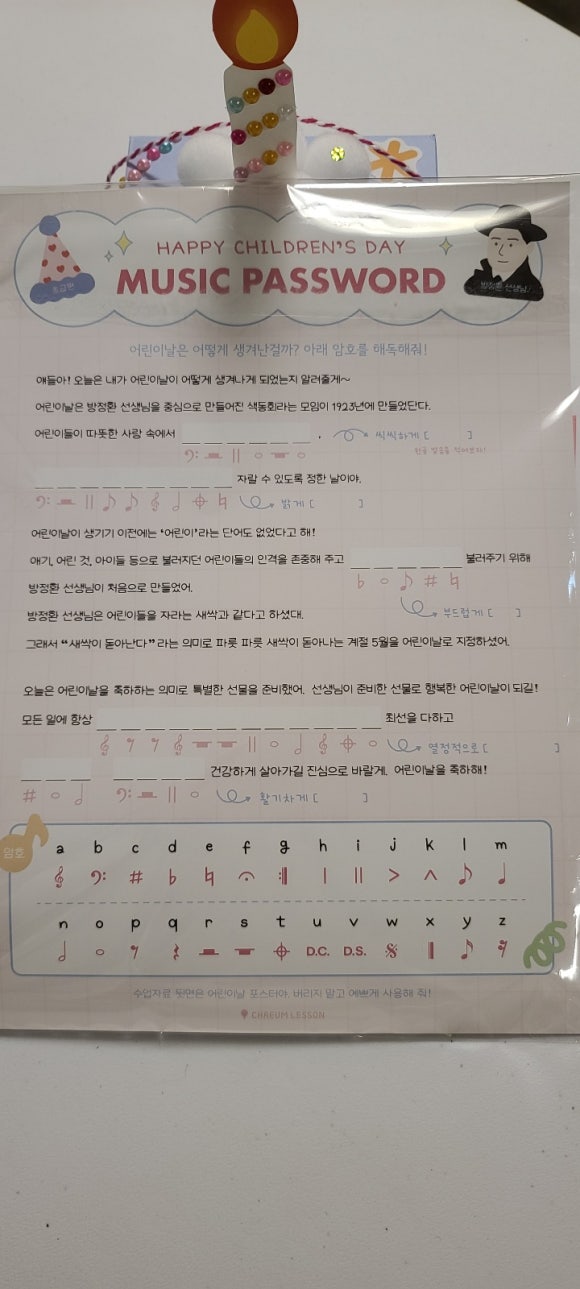 HAPPY CHILDREN'S DAY
MUSIC PASSWORD
초급편
방정환 선생님
어린이날은 어떻게 생겨난걸까? 아래 암호를 해독해줘!
얘들아! 오늘은 내가 어린이날이 어떻게 생겨나게 되었는지 알려줄게~
어린이날은 방정환 선생님을 중심으로 만들어진 색동회라는 모임이 1923년에 만들었단다.
어린이들이 따뜻한 사랑 속에서 _ _ _ _ _ , 씩씩하게 [ ]
한글 발음을 적어보자!
_ _ _ _ _ _ _ _ _ 자랄 수 있도록 정한 날이야.
밝게 [ ]
어린이날이 생기기 이전에는 '어린이'라는 단어도 없었다고 해!
애기, 어린 것, 아이들 등으로 불러지던 어린이들의 인격을 존중해 주고 _ _ _ _ _ 불러주기 위해
방정환 선생님이 처음으로 만들었어.
부드럽게 [ ]
방정환 선생님은 어린이들을 자라는 새싹과 같다고 하셨대.
그래서 "새싹이 돋아난다"라는 의미로 파릇 파릇 새싹이 돋아나는 계절 5월을 어린이날로 지정하셨어.
오늘은 어린이날을 축하하는 의미로 특별한 선물을 준비했어. 선생님이 준비한 선물로 행복한 어린이날이 되길!
모든 일에 항상 _ _ _ _ _ _ _ _ _ _ _ _ 최선을 다하고
열정적으로 [ ]
_ _ _ _ _ _ _ 건강하게 살아가길 진심으로 바랄게. 어린이날을 축하해!
활기차게 [ ]
암호
a b c d e f g h i j k l m
n o p q r s t u v w x y z
D.C. D.S.
수업자료 뒷면은 어린이날 포스터야. 버리지 말고 예쁘게 사용해 줘!
CHAEUM LESSON